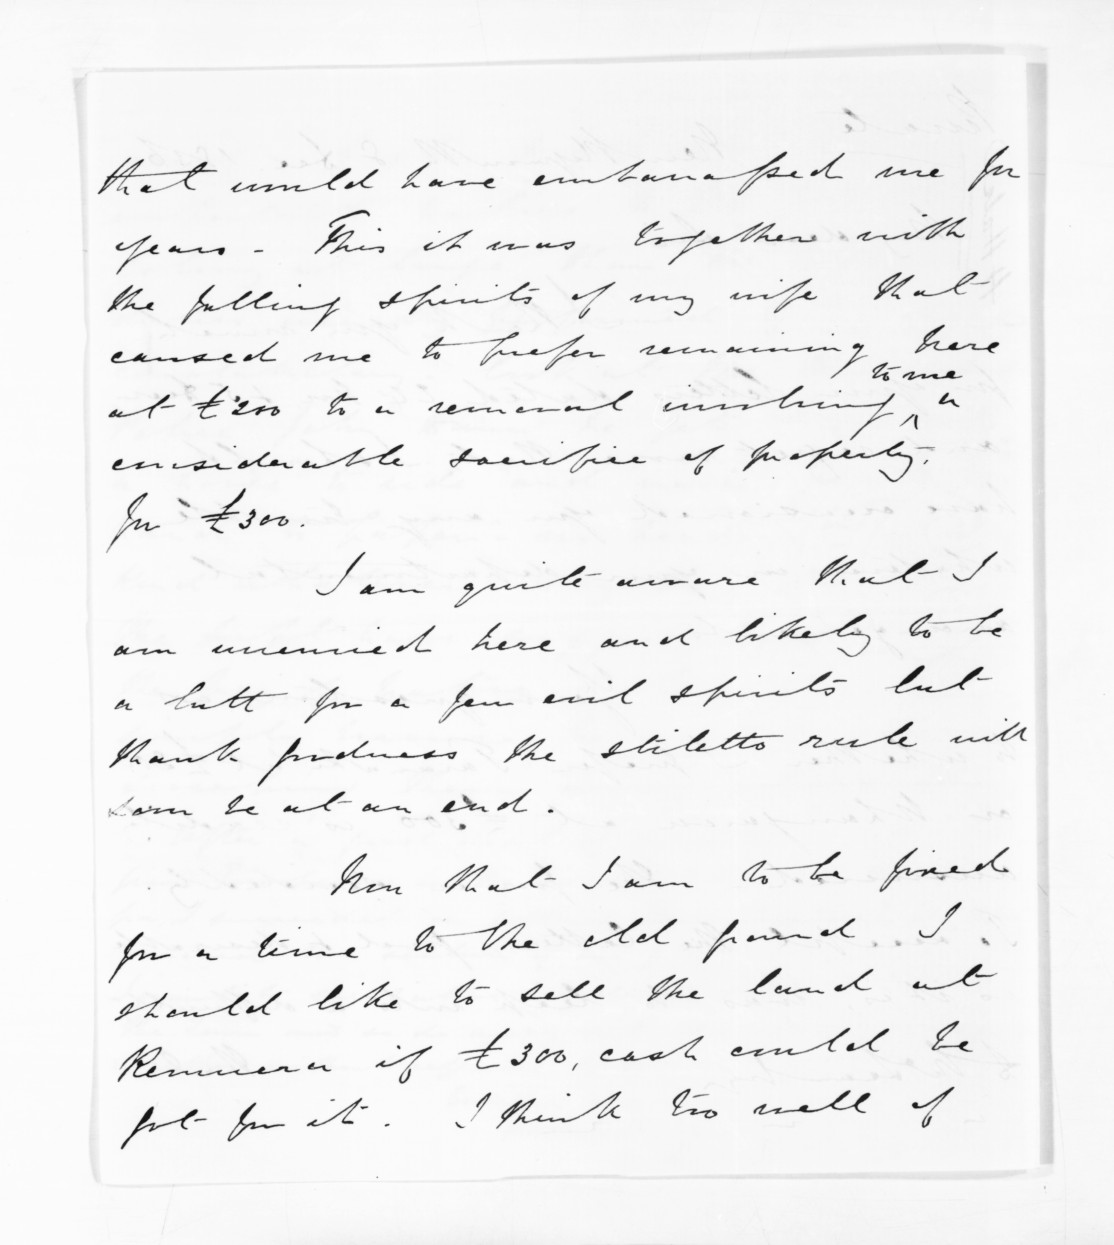 that would have embarrassed me for
years - This it was together with
the falling spirits of my wife that
caused me to prefer remaining here
at £200 to a removal involving to me a
considerable sacrifice of property.
for £300.
I am quite aware that I
am unenvied here and likely to be
a butt for a few evil spirits but
thank goodness the stiletto rule will
soon be at an end.
Now that I am to be fixed
for a time to the old pound I
should like to sell the land at
Remuera if £300, cash could be
got for it. I think too well of